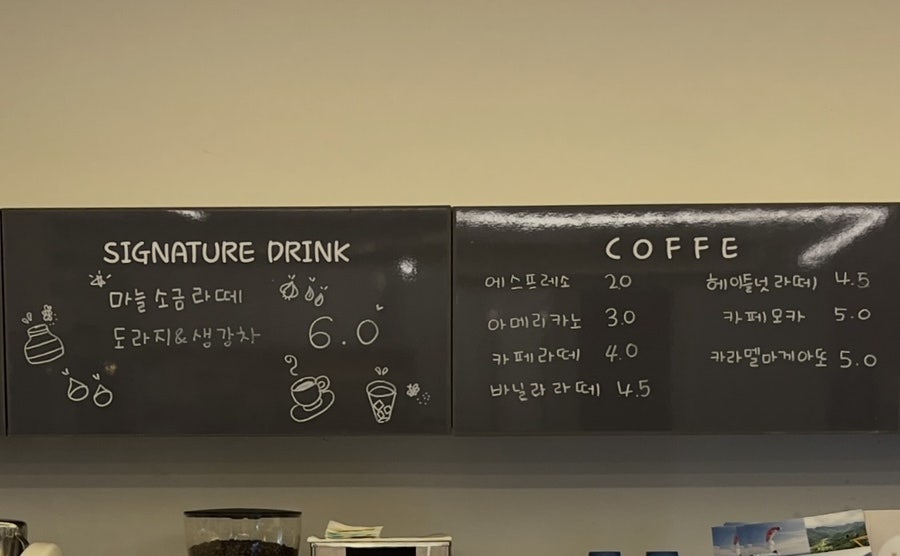 SIGNATURE DRINK
마늘소금라떼
도라지&생강차
6.0
COFFE
에스프레소 2.0
아메리카노 3.0
카페라떼 4.0
바닐라라떼 4.5
헤이들넛라떼 4.5
카페모카 5.0
카라멜마게아또 5.0